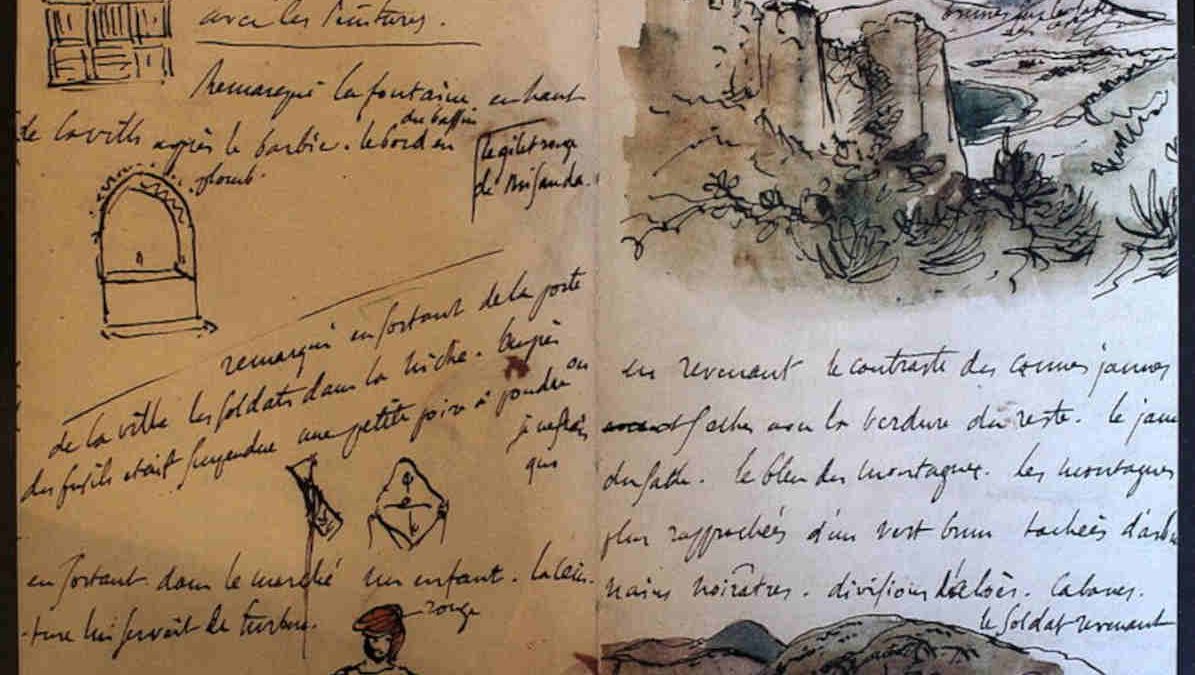 avec les peintures.
Remarqué la fontaine en haut
du bassin
de la ville après le barbier. le bord en
plomb.
le gilet rouge
de
remarqué en sortant de la porte
de la ville les soldats dans la niche. Auprès
des fusils était suspendue une petite poire à poudre ou
je ne sais
quoi
en sortant dans le marché un enfant. la cein-
-ture lui servait de turban.
rouge
en revenant le contraste des cannes jaunes
sèches avec la verdure du reste. le jaune
du sable. le bleu des montagnes. les montagnes
plus rapprochées d'un vert brun tachées d'arbres
nains noirâtres. division d'aloès. Cabanes.
le soldat revenant